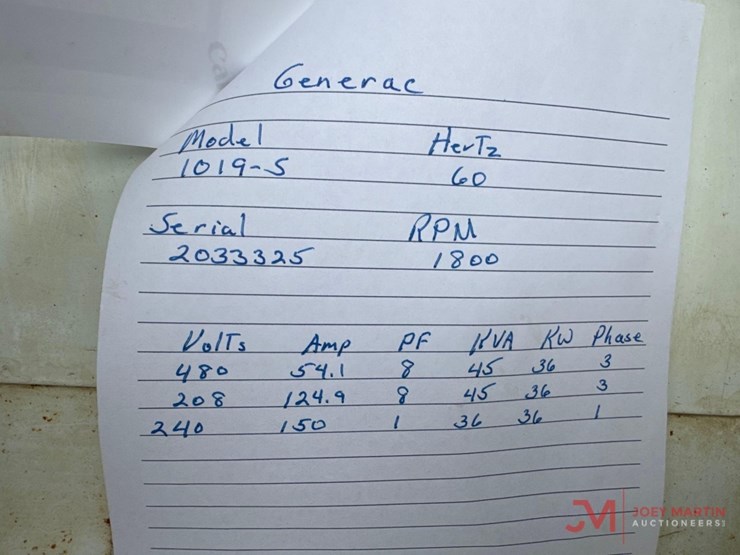 Generac
Model HerTz
1019-S 60
Serial RPM
2033325 1800
VolTs Amp PF KVA KW Phase
480 54.1 8 45 36 3
208 124.9 8 45 36 3
240 150 1 36 36 1
JM JOEY MARTIN
AUCTIONEERS